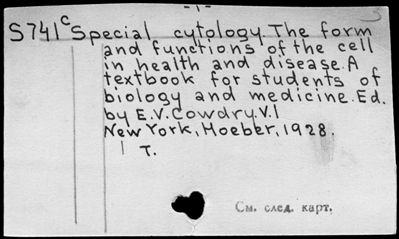 -1-
3
S741c Special cytology. The form
and functions of the cell
in health and disease. A
textbook for students of
biology and medicine. Ed.
by E.V. Cowdry. V.1
New York, Hoeber, 1928.
1 T.
См. след. карт.